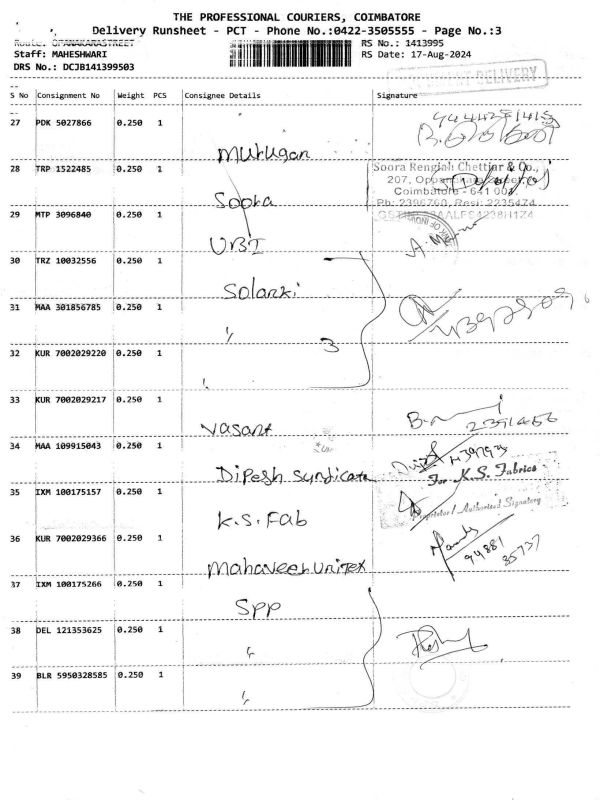 THE PROFESSIONAL COURIERS, COIMBATORE
Delivery Runsheet - PCT - Phone No.:0422-3505555 - Page No.:3
Route: OPANAKARASTREET
RS No.: 1413995
Staff: MAHESHWARI
RS Date: 17-Aug-2024
DRS No.: DCJB141399503
DELIVERY
S No Consignment No Weight PCS Consignee Details Signature
27 PDK 5027866 0.250 1
Murugan
28 TRP 1522485 0.250 1
Soora Rengiah Chettiar & Co.,
207, Oppanakara Street,
Coimbatore - 641 001
Ph: 2396760, Resi: 2235474
Soora
29 MTP 3096840 0.250 1
UBI
30 TRZ 10032556 0.250 1
Solanki
31 MAA 301856785 0.250 1
"
32 KUR 7002029220 0.250 1
3
"
33 KUR 7002029217 0.250 1
Vasant
2391456
34 MAA 109915043 0.250 1
Dipesh Syndicate
For K.S. Fabrics
35 IXM 100175157 0.250 1
K.S. Fab
Proprietor / Authorised Signatory
36 KUR 7002029366 0.250 1
Mahaveer Unitex
94881
85737
37 IXM 100175266 0.250 1
SPP
38 DEL 121353625 0.250 1
"
39 BLR 5950328585 0.250 1
"